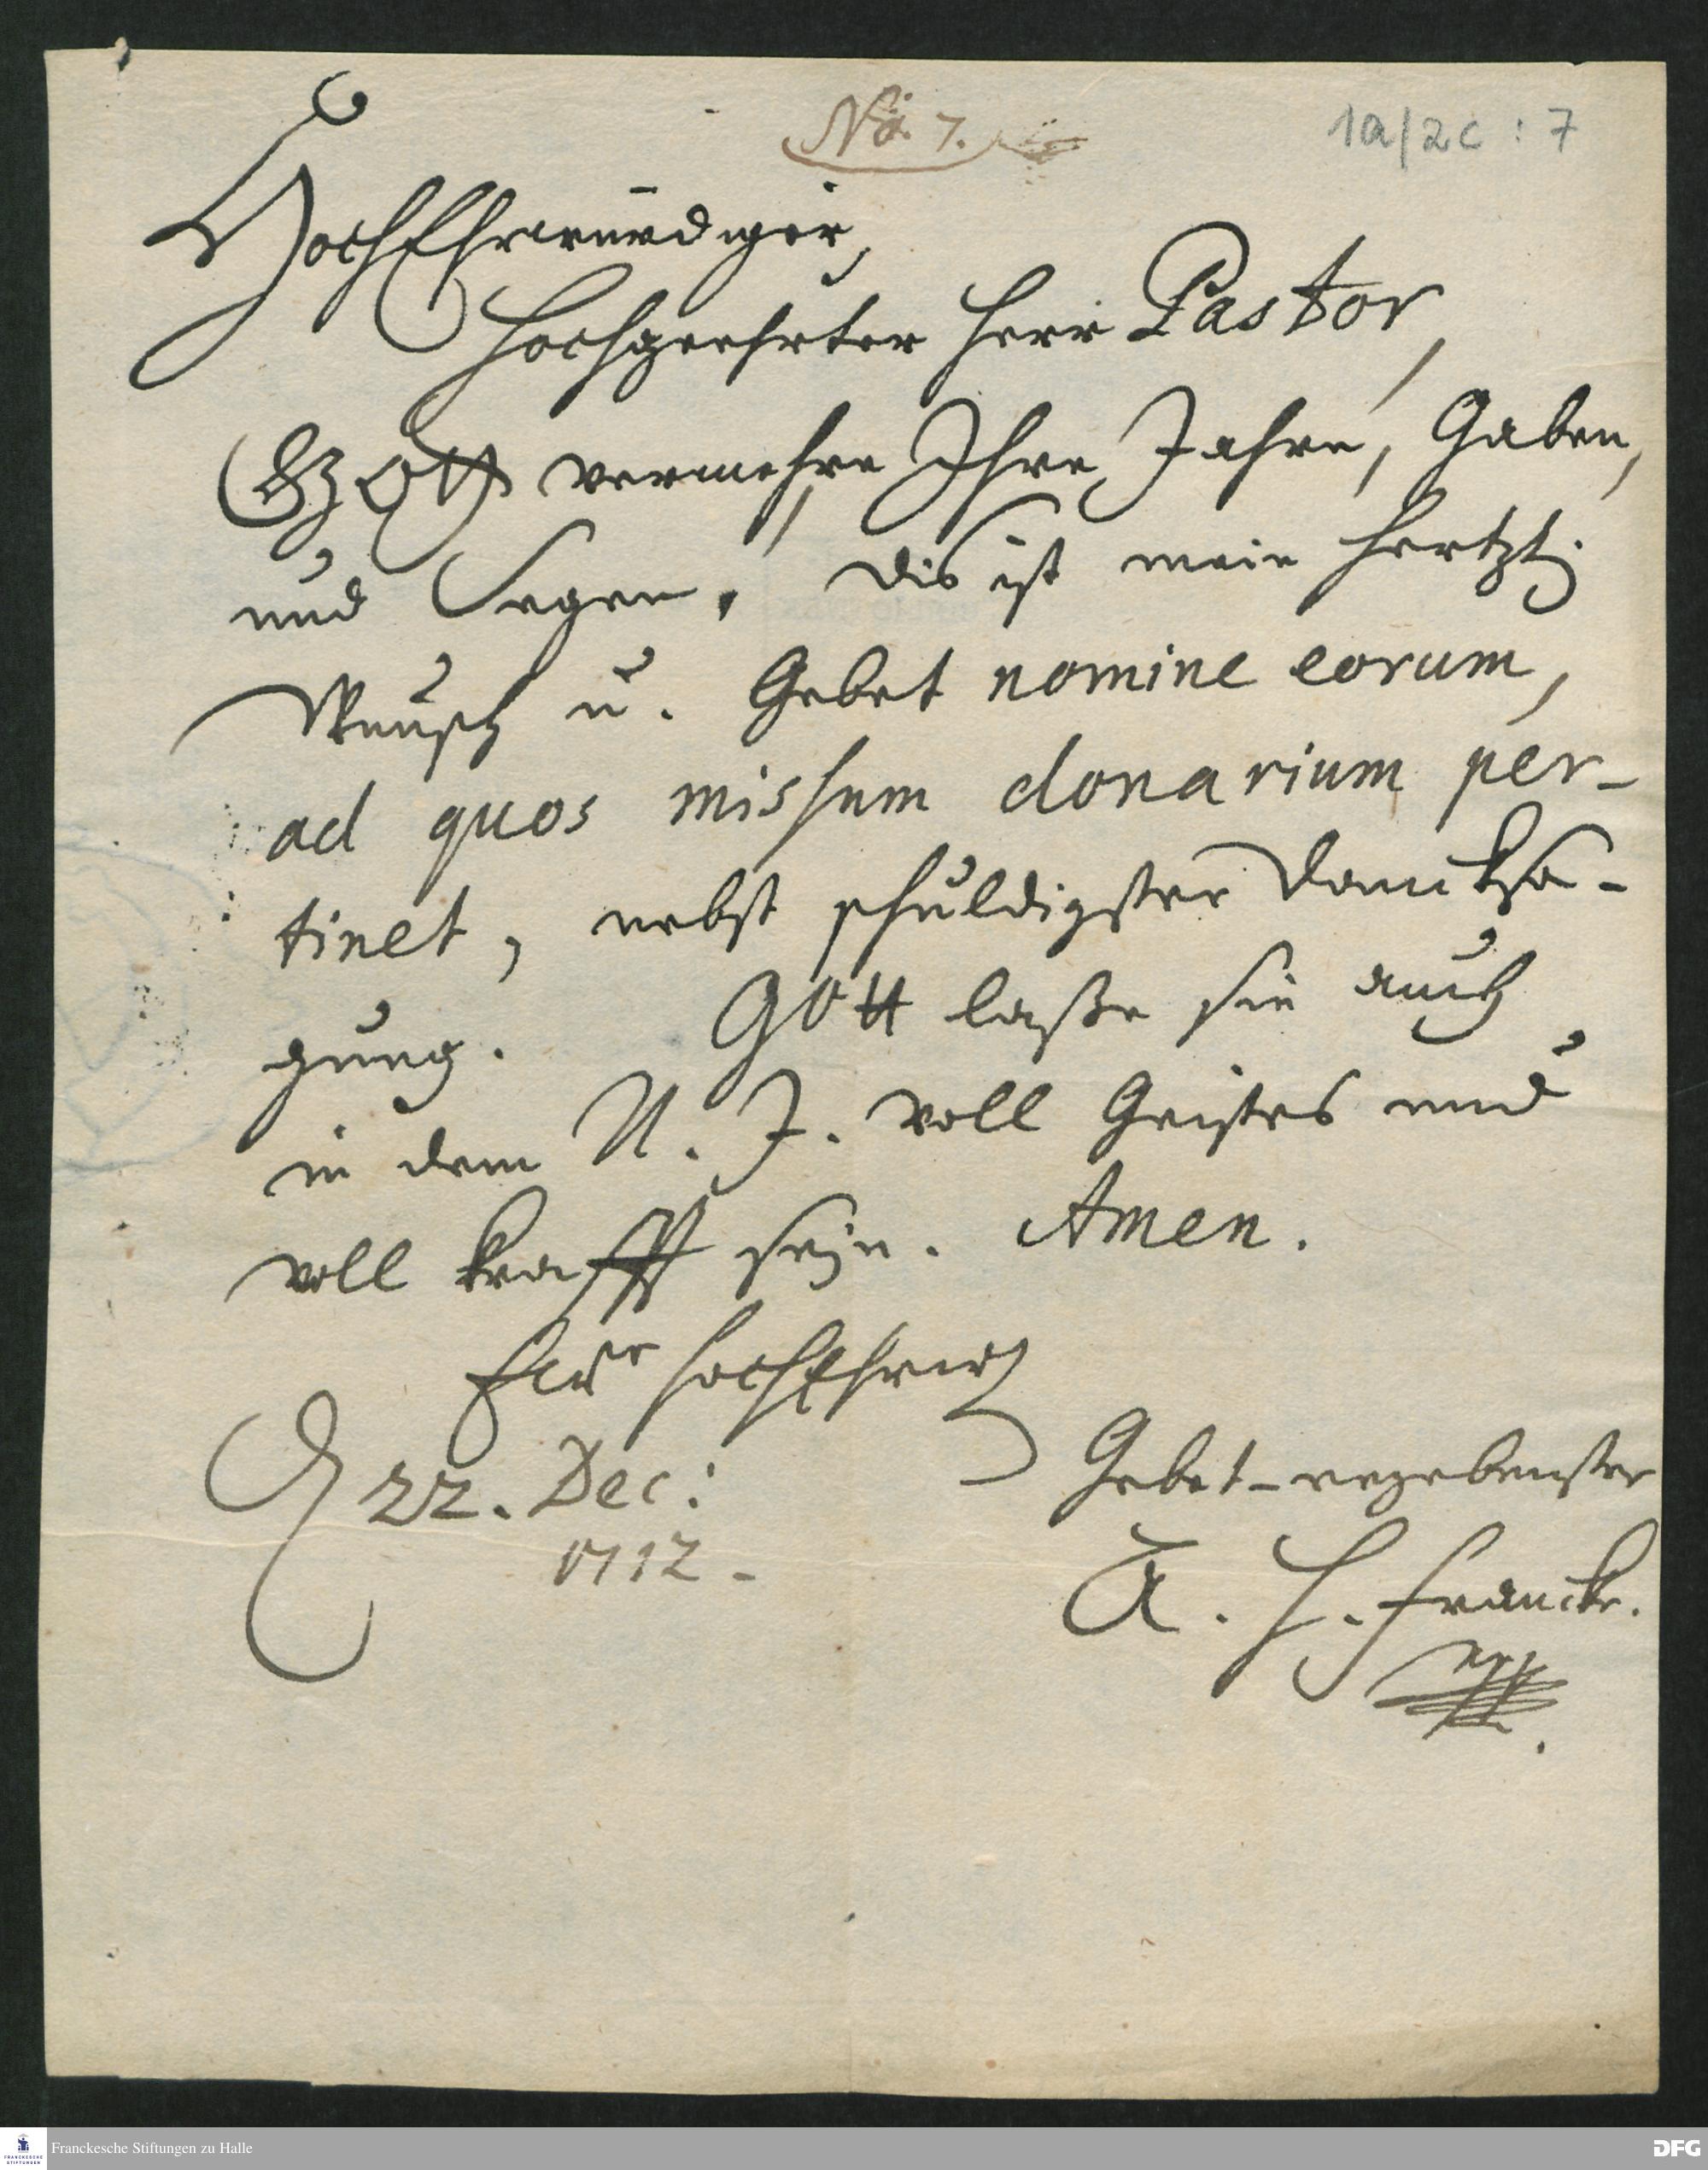 No. 7.
1a/2c : 7
HochEhrwürdiger,
Hochgeehrter Herr Pastor,
GOtt vermehre Ihre Jahre, Gaben,
und Segen, dis ist mein hertzl.
Wunsch u. Gebet nomine eorum,
ad quos missum donarium per-
tinet, nebst schuldigster Dancksa-
gung. GOtt laße sie auch
in dem N. J. voll Geistes und
voll Krafft sejn. Amen.
Ewr HochEhrw
22. Dec:
1712.
Gebet-ergebenster
A. H. Francke.
Franckesche Stiftungen zu Halle
FRANCKESCHE STIFTUNGEN
DFG